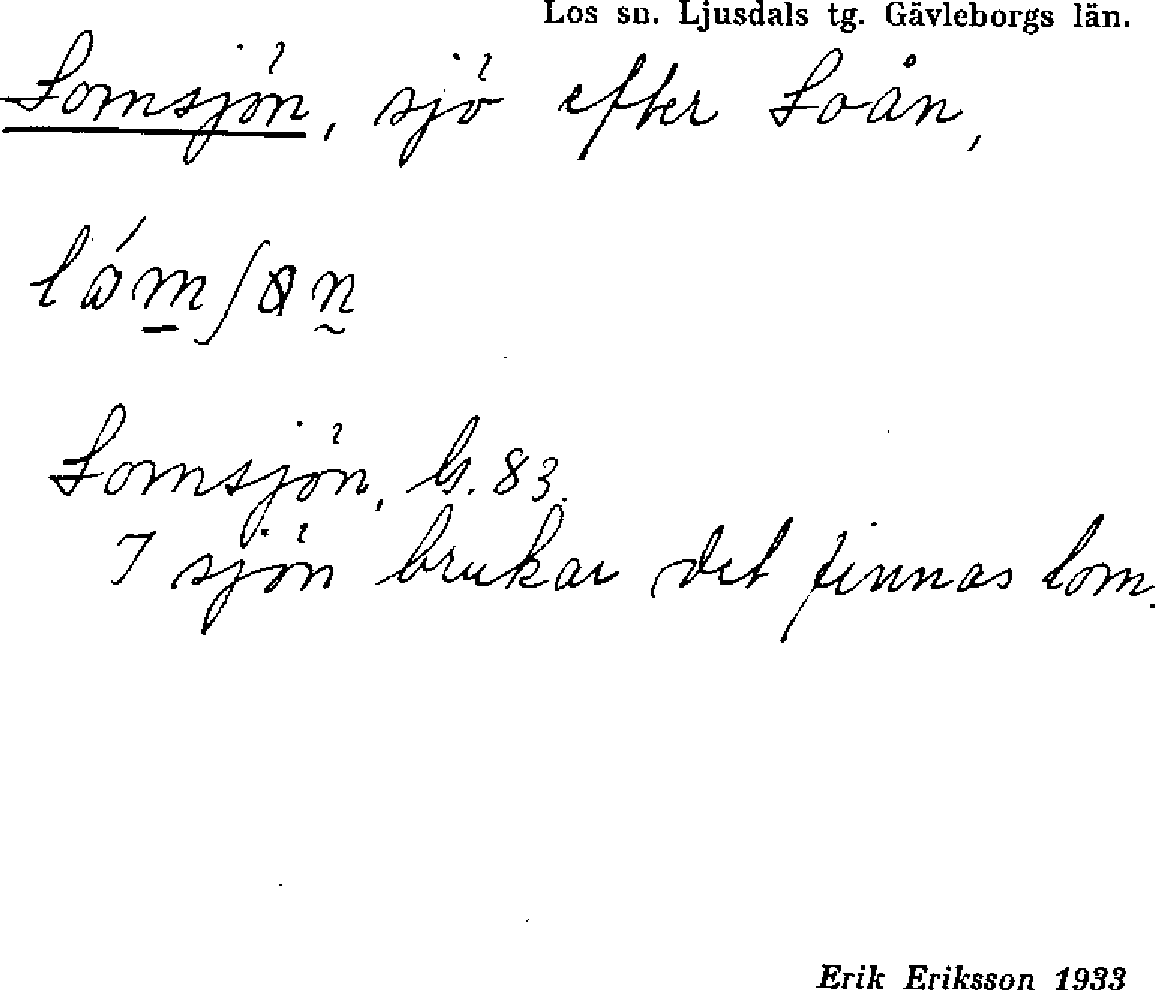 Los sn. Ljusdals tg. Gävleborgs län.
Lomsjön, sjö efter Loån,
Lomsjön, b. 83.
I sjön brukar det finnas lom.
Erik Eriksson 1933